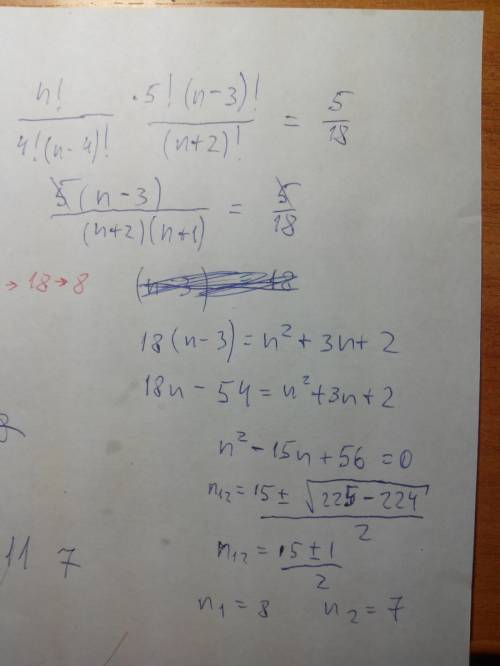 n!/4!(n-4)! · 5!(n-3)!/(n+2)! = 5/18
5(n-3)/(n+2)(n+1) = 5/18
→ 18 → 8
18(n-3) = n² + 3n + 2
18n - 54 = n² + 3n + 2
n² - 15n + 56 = 0
n₁₂ = 15 ± √225 - 224 / 2
n₁₂ = 15 ± 1 / 2
11 7
n₁ = 8 n₂ = 7